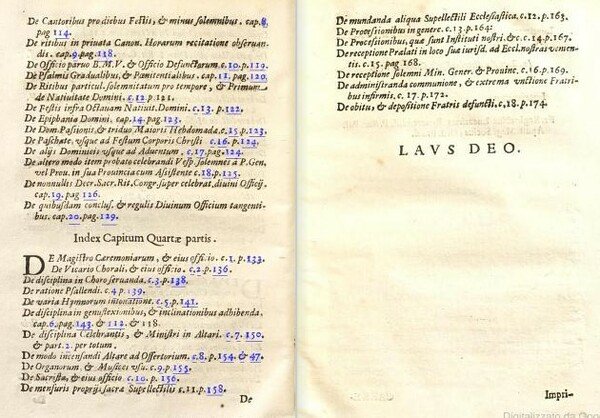 De Cantoribus prodiebus Festis, & minus solemnibus. cap.8,
pag 114.
De ritibus in priuata Canon. Horarum recitatione obseruan-
dis. cap.9.pag.118.
De Officio paruo B.M.V. & Officio Defunctorum.c.10.p.119.
De Psalmis Gradualibus, & Pœnitentialibus. cap.11, pag.120.
De Ritibus particul.solemnitatum pro tempore, & Primum
de Natiuitate Domini. c.12 p.121.
De Festis infra Octauam Natiuit.Domini. c.13. p.122,
De Epiphania Domini. cap.14.pag.123.
De Dom.Passionis,& triduo Maioris Hebdomadæ.c.15 p.123.
De Paschate, vsque ad Festum Corporis Christi c.16.p.124,
De alijs Dominicis vsque ad Aduentum. c.17.pag.124.
De altero modo item probato celebrandi Vesp.solemnes à P.Gen.
vel Prou. in sua Prouincia aut Assistente c.18.p.125.
De nonnullis Decr.Sacr.Rit.Congr.super celebrat.diuini Officij.
cap.19.pag 126.
De quibusdam conclus. & regulis Diuinum Officium tangenti-
bus. cap.20.pag.129.
Index Capitum Quartæ partis.
DE Magistro Cæremoniarum, & eius offi.io. c.1. p.133.
De Vicario Chorali, & eius officio. c.2.p.136.
De disciplina in Choro seruanda. c.3.p.138.
De ratione Psallendi. c.4.p.139.
De varia Hymnorum intonatione. c.5.p.141.
De disciplina in genuflexionibus, & inclinationibus adhibenda.
cap.6.pag.143. & 112. & 138.
De disciplina Celebrantis, & Ministri in Altari. c.7. 150.
& part.2. per totum.
De modo incensandi Altare ad Offertorium. c.8. p.154. & 47.
De Organorum, & Musices vsu. c.9.p.155.
De Sacrista, & eius officio c.10. p. 156.
De mensuris proprijs sacræ Supellectilis c.11.p.158.
De
De mundanda aliqua Supellectili Ecclesiastica.c.12.p.163.
De Processionibus in genere. c.13.p.164.
De Processionibus,quæ sunt Instituti nostri.& c.c.14.p.167.
De receptione Prælati in loco sua iurisd. ad Eccl.nostras venien-
tis. c.15. pag.168.
De receptione solemni Min. Gener. & Prouinc. c.16.p.169.
De administranda communione, & extrema vnctione Fratri-
bus infirmis. c.17. p.172.
De obitu, & depositione Fratris defuncti.c.18.p.174.
LAVS DEO.
Impri-
Digitalizzato da Goo